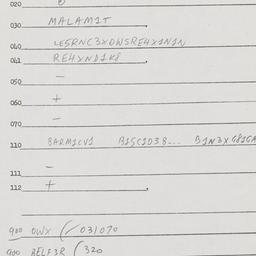 020
030 MALAM1T
060 LESRNC3XOWSREHX1N1N
061 REHXND1K8
050 -
060 +
070 -
110 8ARM1CV1 B15C1038... B1N3X
111 -
112 +
900 OWX (/031070
900 RELF3R (320